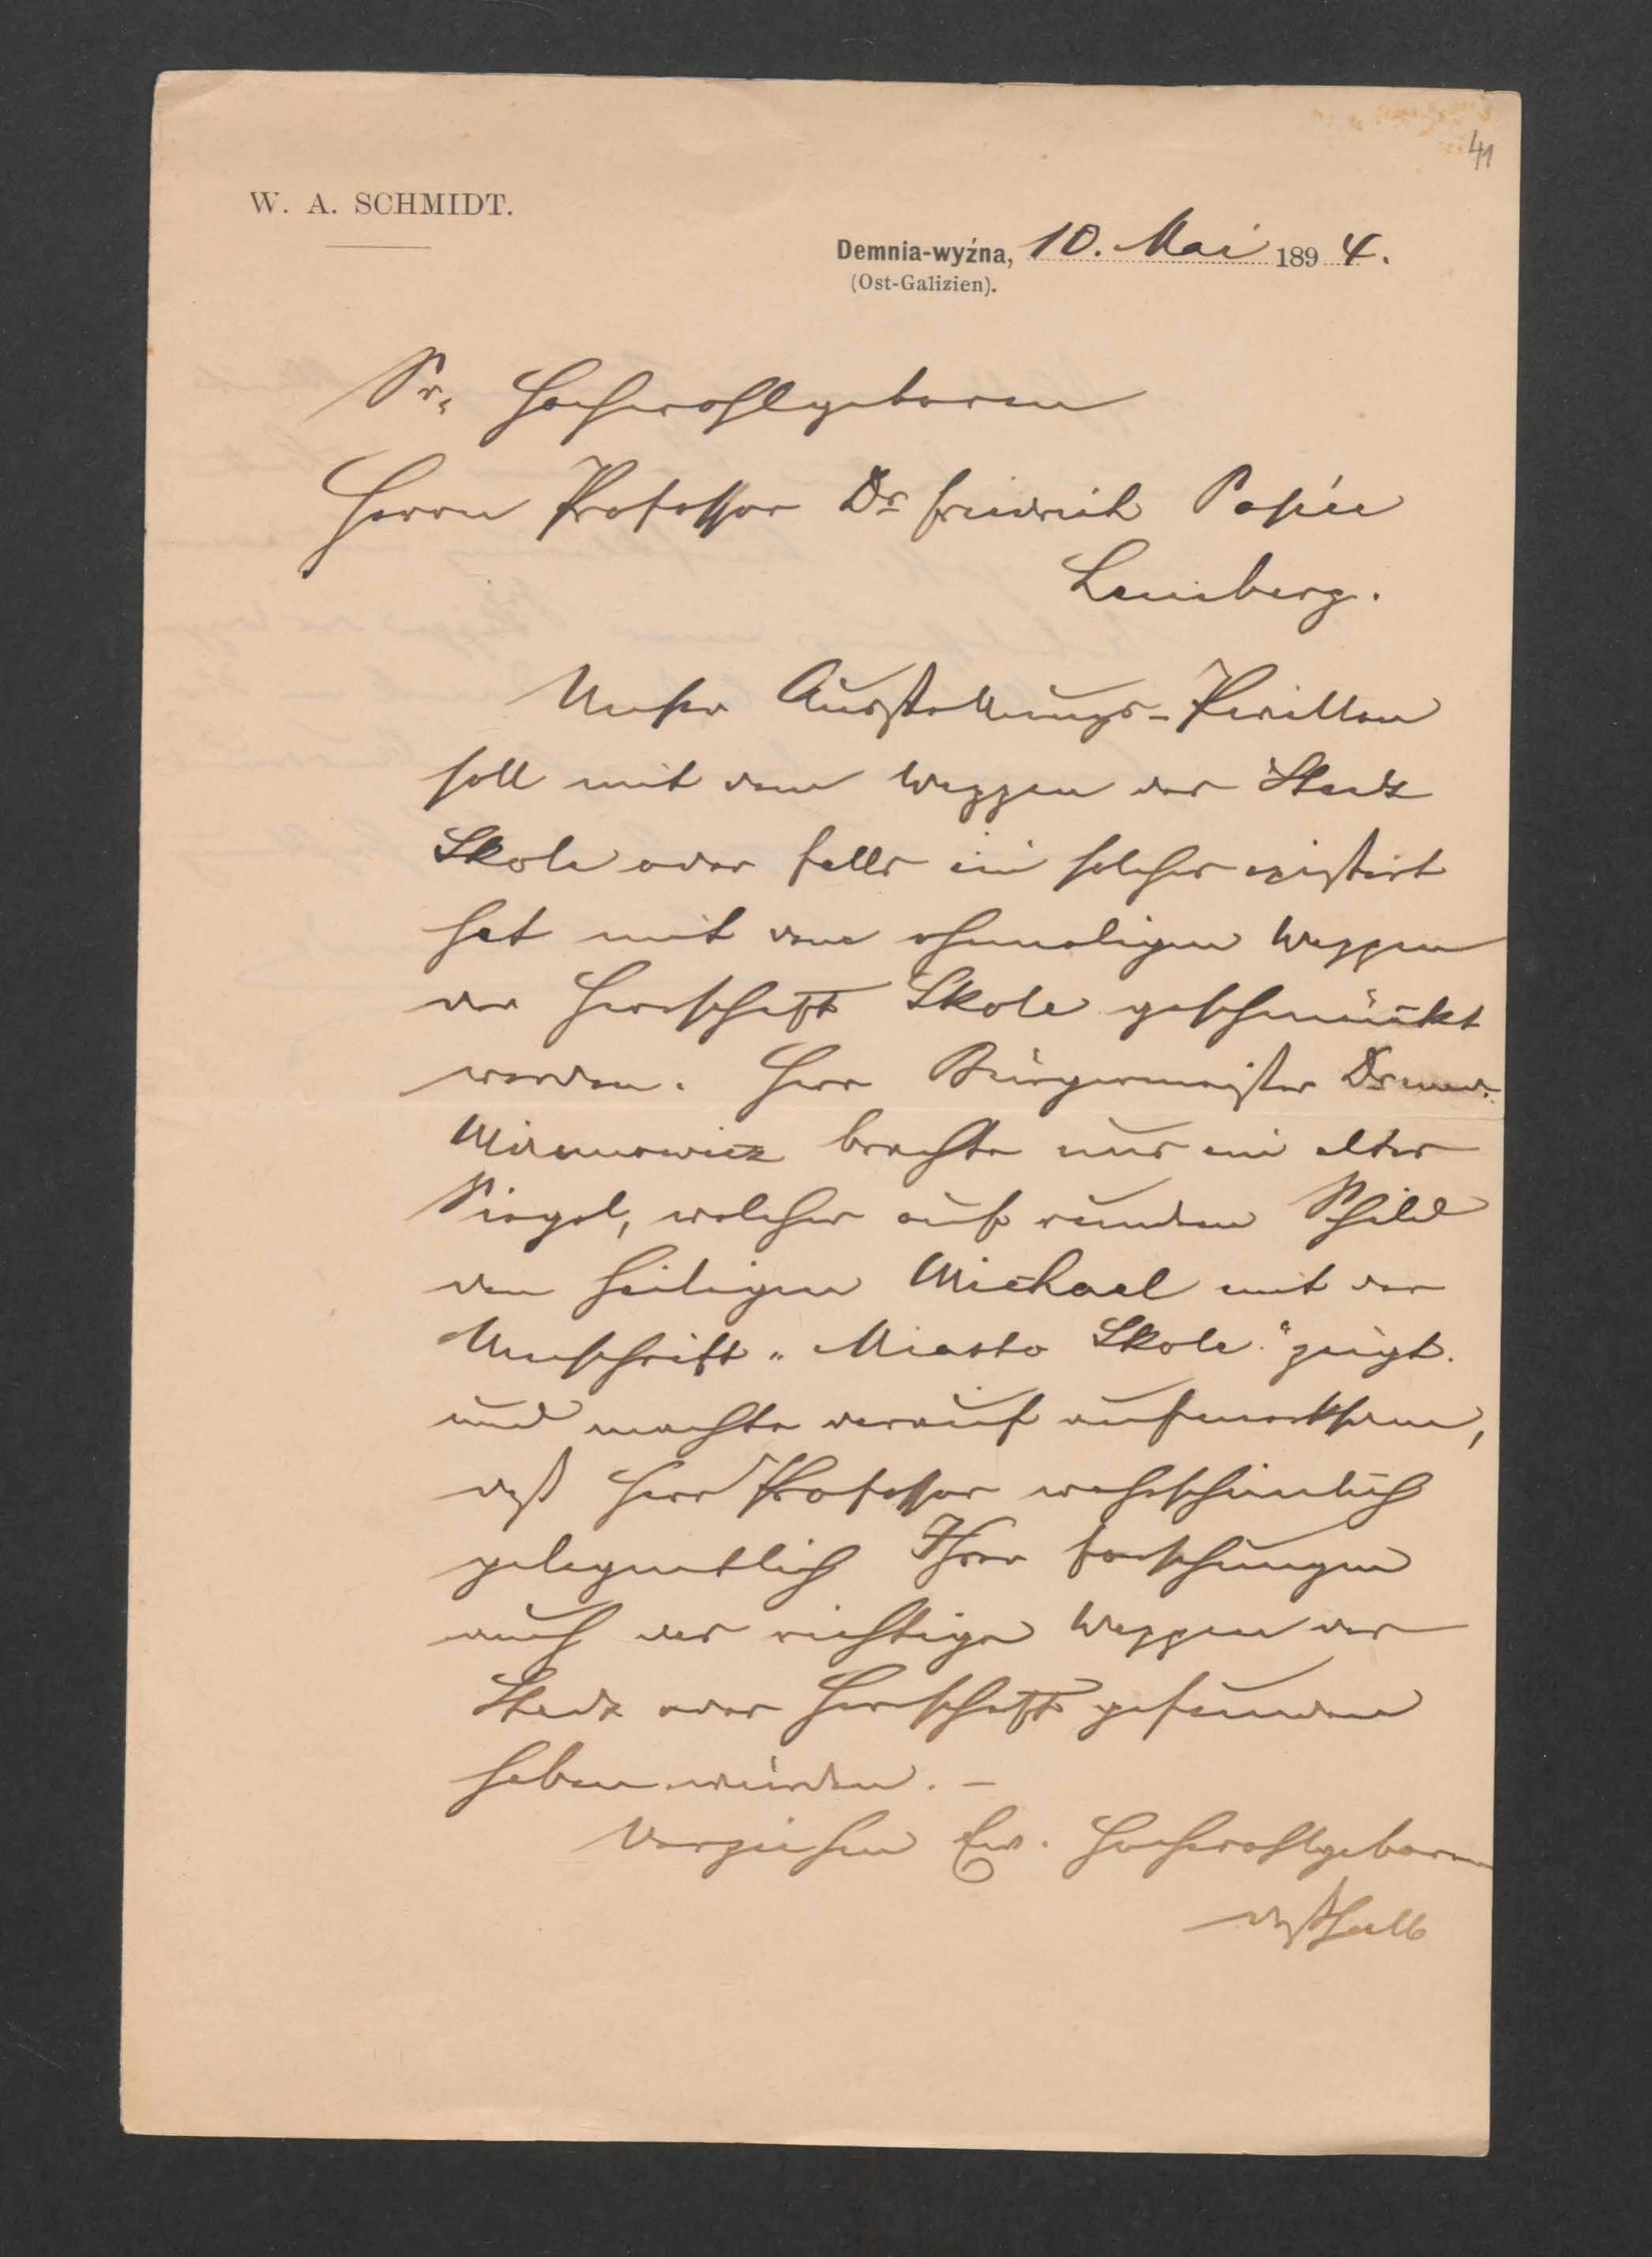 41
W. A. SCHMIDT.
Demnia-wyźna, 10. Mai 1894.
(Ost-Galizien).
Sr. Hochwohlgeboren
Herrn Professor Dr Friedrich Papée
Lemberg.
Unser Ausstellungs-Pavillon
soll mit dem Wappen der Stadt
Skole oder falls ein solches existirt
hat mit dem ehemaligen Wappen
der Herrschaft Skole geschmückt
werden. Herr Bürgermeister Dr med.
brachte uns ein altes
Siegel, welches auf rundem Schild
den heiligen Michael mit der
Umschrift „Miasto Skole" zeigt.
und machte darauf aufmerksam,
daß Herr Professor wahrscheinlich
gelegentlich Ihrer Forschungen
auch das richtige Wappen der
Stadt oder Herrschaft gefunden
haben würden. –
Verzeihen Ew. Hochwohlgeboren
deßhalb